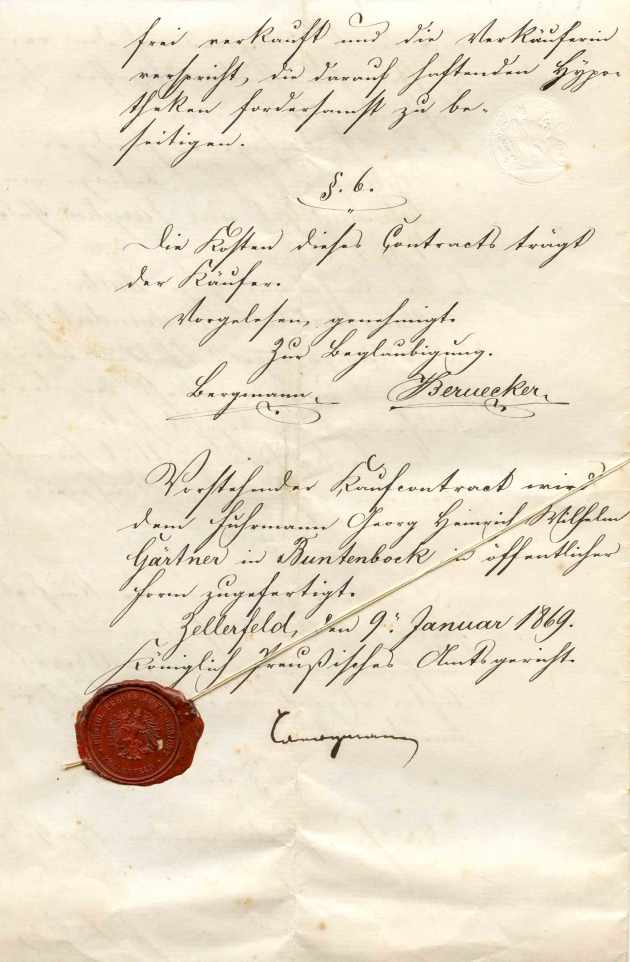 frei verkauft und die Verkäuferin
verspricht, die darauf haftenden Hypo-
theken fordersamst zu be-
seitigen.
§. 6.
Die Kosten dieses Contracts trägt
der Käufer.
Vorgelesen, genehmigt.
Zur Beglaubigung.
Bergmann. Beruecker.
Vorstehender Kaufcontract wird
dem Fuhrmann Georg Heinrich Wilhelm
Gärtner in Buntenbock in öffentlicher
Form zugefertigt.
Zellerfeld, den 9. Januar 1869.
Königlich Preußisches Amtsgericht.